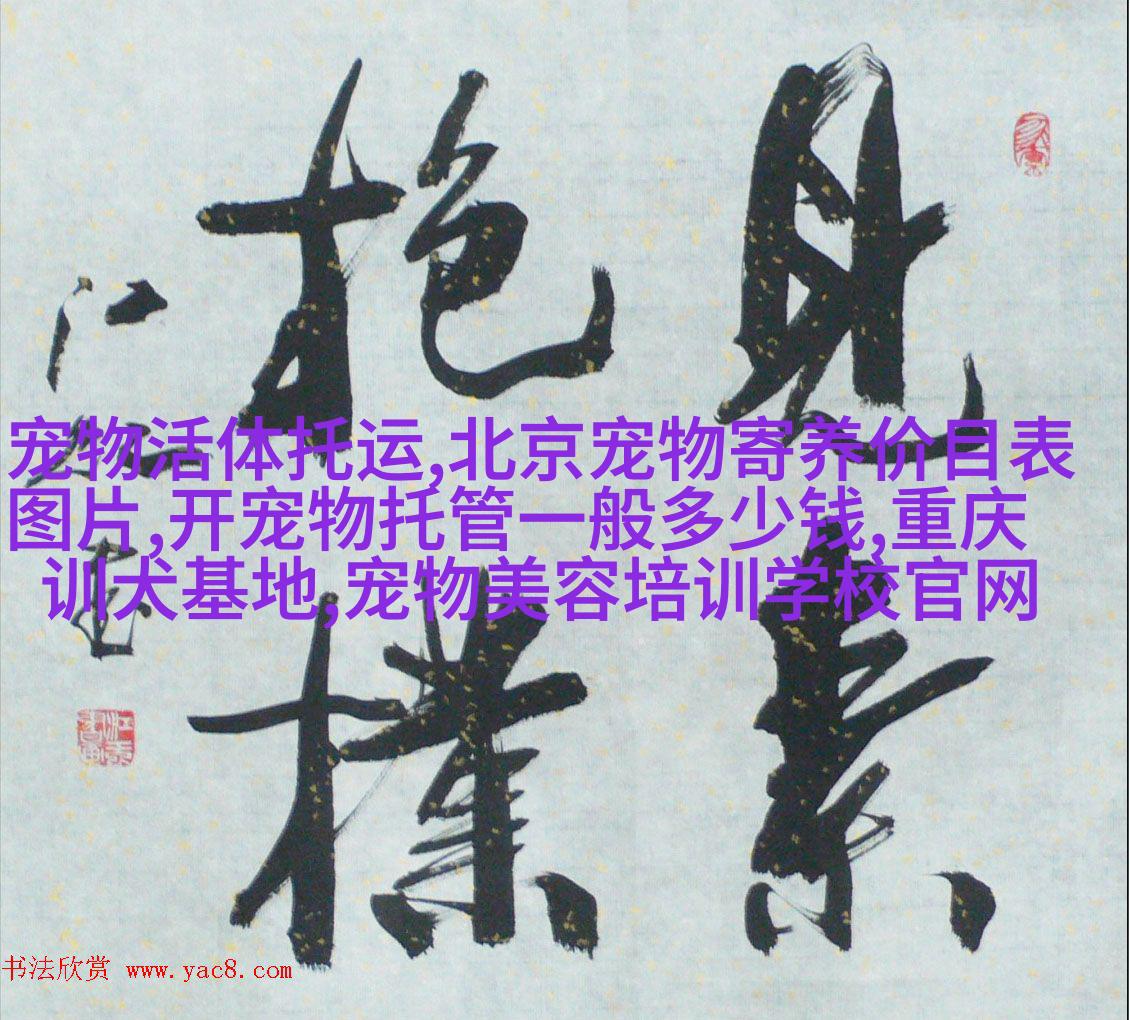 見素
抱樸
宠物活体托运,北京宠物寄养价目表
图片,开宠物托管一般多少钱,重庆
训犬基地,宠物美容培训学校官网
书法欣赏 www.yac8.com